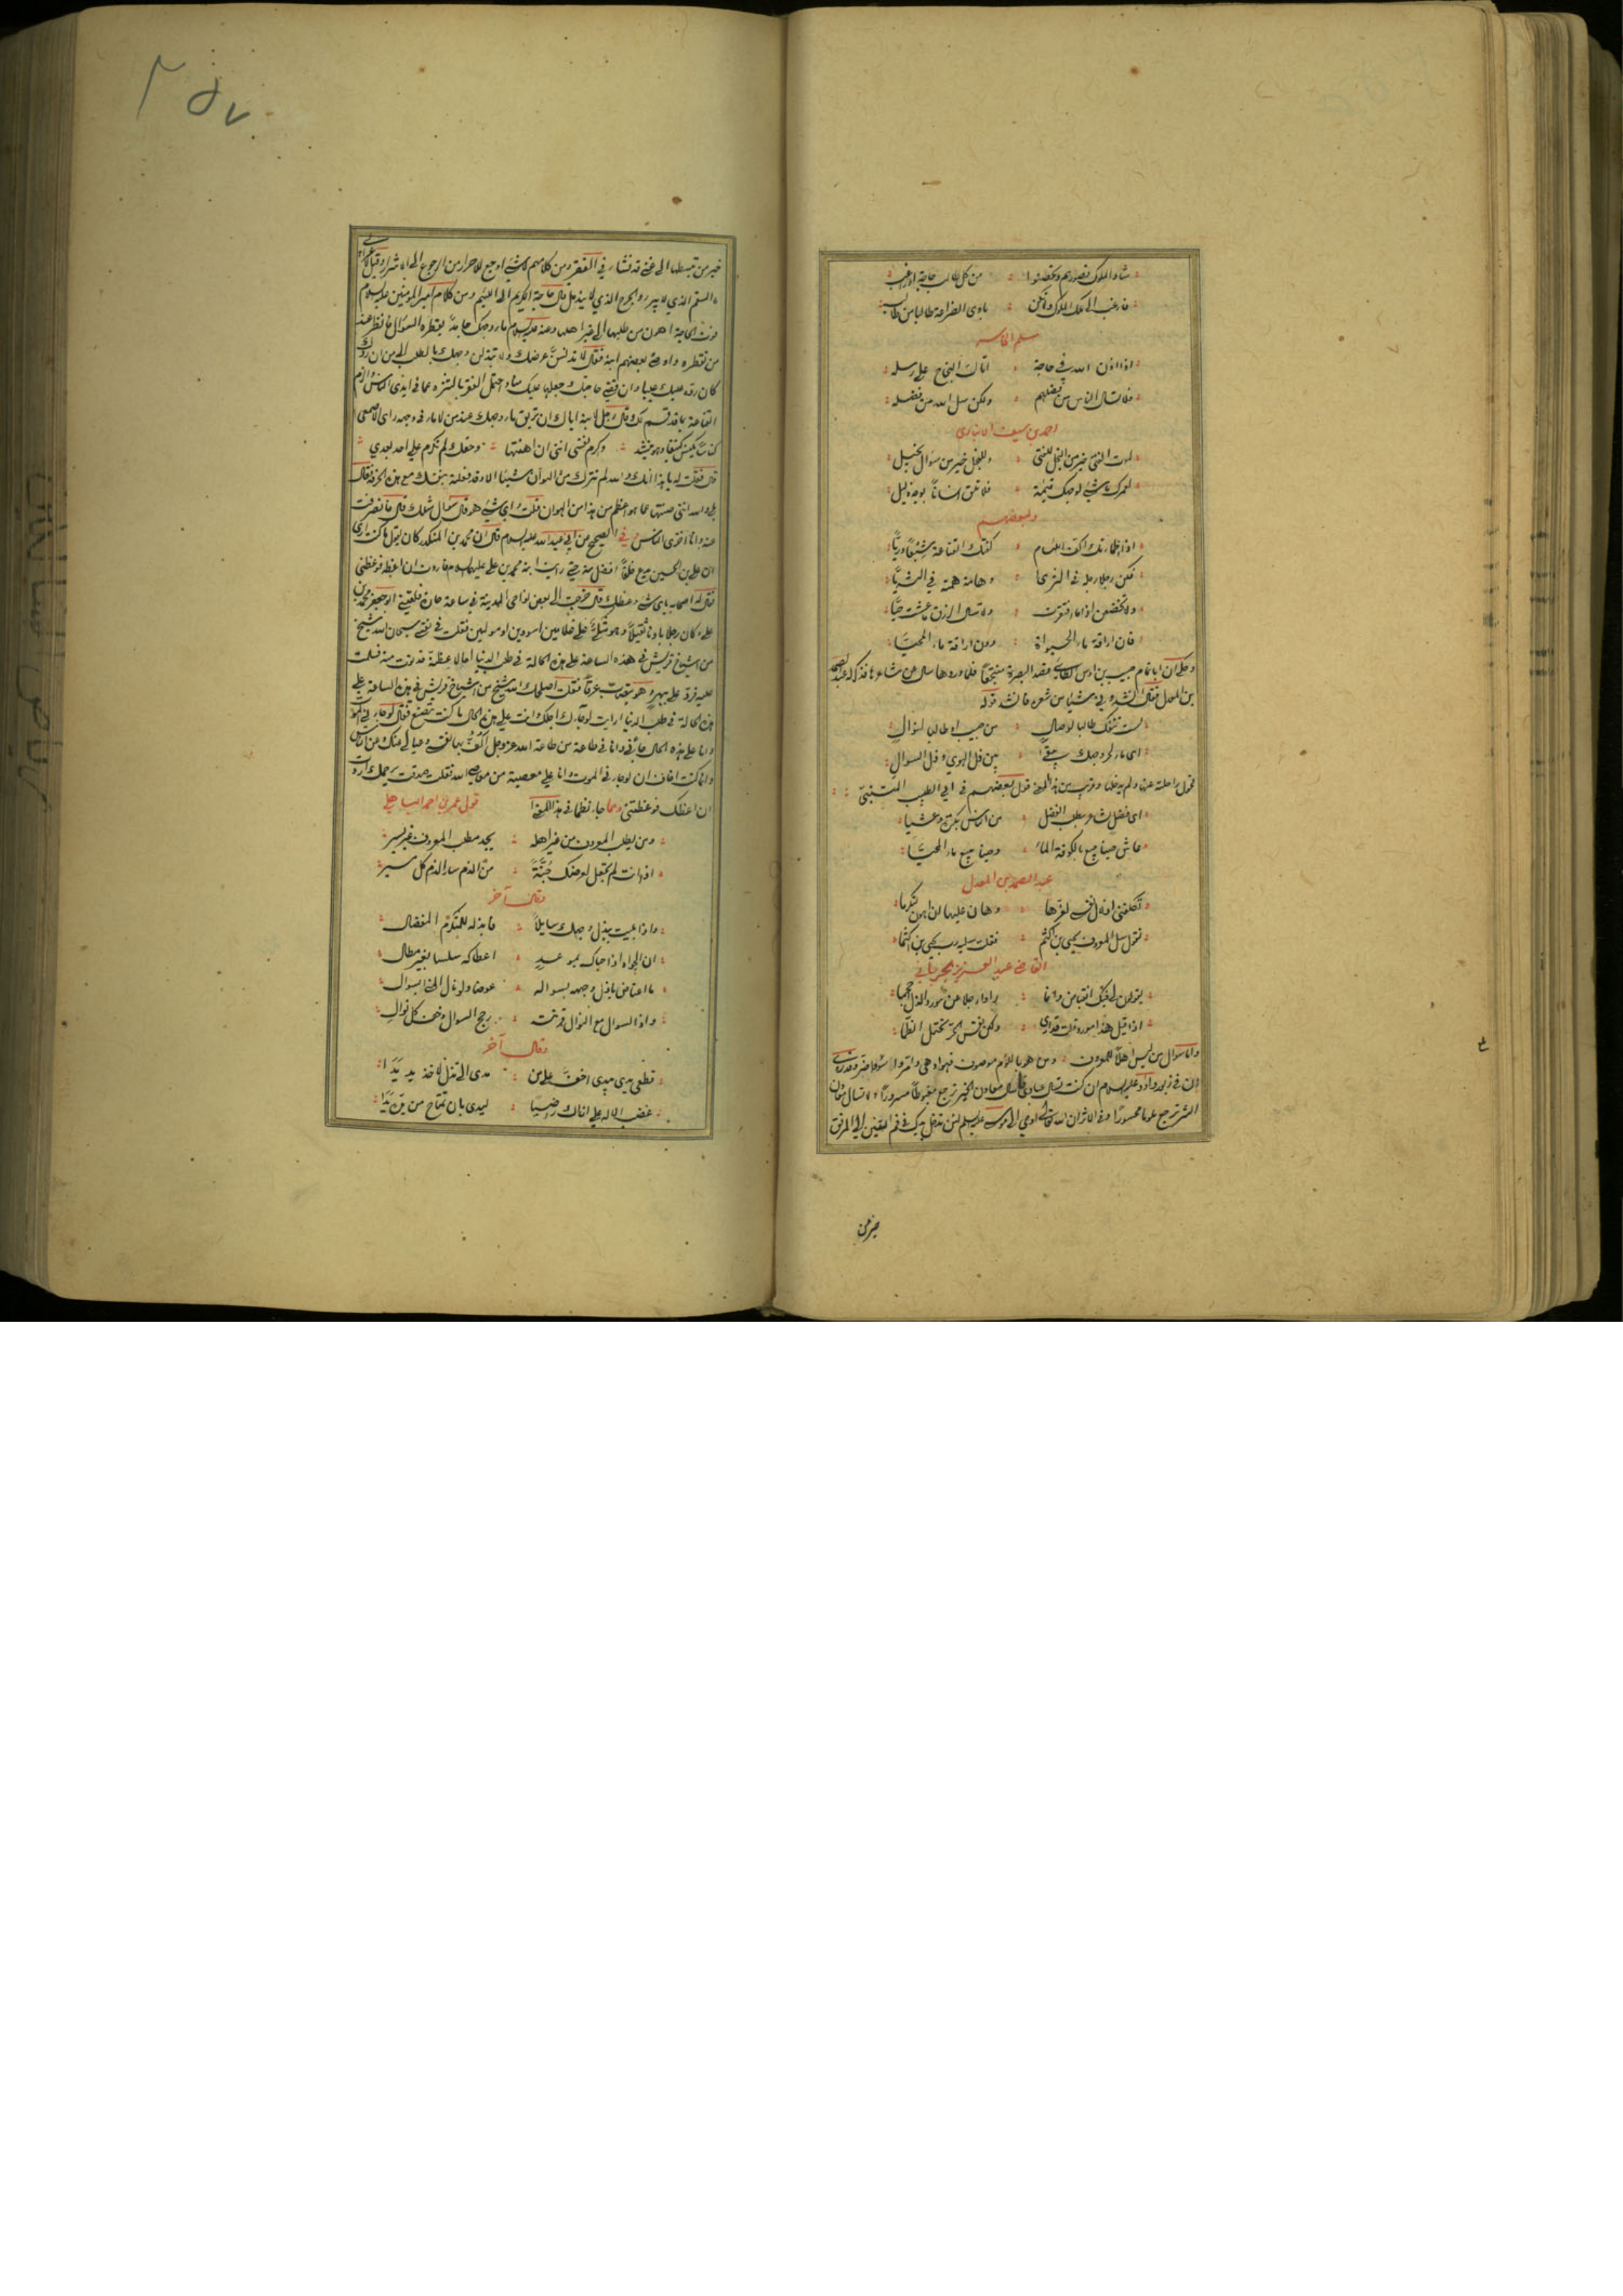 شاد الملوك قصورهم وتحصنوا من كل طالب حاجة او راغب
فارغب الى ملك الملوك ولا تكن بادي الضراعة طالبا من طالب
سلم الخاسر
اذا اذن الله في حاجة اتاك النجاح على رسله
فلا تسال الناس من فضلهم ولكن سل الله من فضله
احمد بن سيف الانباري
لموت الفتى خير من البخل للفتى وللبخل خير من سؤال بخيل
لعمرك ما شيء لوجهك قيمة فلا تلق انسانا بوجه ذليل
ولبعضهم
اذا اظمأتك اكف اللئام كفتك القناعة شبعا وريا
فكن رجلا رجله في الثرى وهامة همته في الثريا
ولا تخضعن اذا ما افتقرت ولا تسال الرزق ما عشت حيا
فان اراقة ماء الحيوة دون اراقة ماء المحيا
وحكى ان ابا تمام حبيب بن اوس الطائي قصد البصرة منتجعا فلما وردها سال عن شاعرها فذكر له عبد الصمد
بن المعدل فقال انشدوني شيئا من شعره فانشد قوله
لست تنفك طالبا لوصال من حبيب او طالبا لنوال
اي ماء لحر وجهك يبقى بين ذل الهوى وذل السوال
فحول راحلته عنها ولم يدخلها وقريب من هذا المعنى قول بعضهم في ابي الطيب المتنبي
اي فضل لشاعر يطلب الفضل من الناس بكرة وعشيا
عاش حينا يبيع بالكوفة الماء وحينا يبيع ماء المحيا
عبد الصمد بن المعدل
تكلفني اذلال نفسي لعزها وهان عليها ان اهون لتكرما
تقول سل المعروف يحيى بن اكثم فقلت سليه رب يحيى بن اكثما
القاضي عبد العزيز الجرجاني
يقولون لي فيك انقباض وانما راوا رجلا عن مورد الذل احجما
اذا قيل هذا مورد قلت قد ارى ولكن نفس الحر تحتمل الظما
واما سؤال من ليس اهلا للمعروف ومن هو باللؤم موصوف
الشر ترجع ملوما محسورا وفي الاثر ان الله تعالى اوحى الى موسى عليه السلم لئن تدخل يدك في فم التنين الى المرفق
خير من
خير من تبسطها الى غني قد نشا في الفقر ومن كلامهم لا شيء اوجع للاحرار من الرجوع الى الاشرار
السقم الذي لا يبرء والجرح الذي لا يندمل قال حاجة الكريم الى اللئيم ومن كلام امير المؤمنين عليه السلام
فوت الحاجة اهون من طلبها الى غير اهلها وعنه عليه السلام ماء وجهك جامد يقطره السؤال فانظر عند
من تقطره واوصى بعضهم ابنه فقال لا تدنس عرضك ولا تبذلن وجهك بالطلب الى من ان ردك
كان رده عليك عيبا وان قضى حاجتك جعلها عليك منا واحتمل الفقر بالتنزه عما في ايدي الناس والزم
القناعة بما قد قسم لك وقال رجل لابنه اياك ان تريق ماء وجهك عند من لا ماء في وجهه راى الاصمعي
كناسا يكنس كنيفا وهو ينشد واكرم نفسي انني ان اهنتها وحقك لم تكرم على احد بعدي
قال فقلت له يا هذا انك والله لم تترك من الهوان شيئا الا وقد فعلته بنفسك مع هذه الحرفة فقال
بلى والله انني صنتها عما هو اعظم من هذا من الهوان قلت واي شيء هو قال سؤال مثلك قال فانصرفت
عنه وانا اخزى الناس وفي الصحيح من ابي عبد الله عليه السلام قال ان محمد بن المنكدر كان يقول ما كنت ارى
ان علي بن الحسين يدع خلفا افضل منه حتى رايت ابنه محمد بن علي عليهما السلام فاردت ان اعظه فوعظني
فقال له اصحابه باي شيء وعظك قال خرجت الى بعض نواحي المدينة في ساعة حارة فلقيني ابو جعفر محمد بن
علي وكان رجلا بادنا ثقيلا وهو متكئ على غلامين اسودين او موليين فقلت في نفسي سبحان الله شيخ
من اشياخ قريش في هذه الساعة على هذه الحالة في طلب الدنيا اما لاعظنه فدنوت منه فسلمت
عليه فرد علي بنهر وهو يتصاب عرقا فقلت اصلحك الله شيخ من اشياخ قريش في هذه الساعة على
هذه الحالة في طلب الدنيا ارايت لو جاءك اجلك وانت على هذه الحال ما كنت تصنع فقال لو جاءني الموت
وانا على هذه الحال جاءني وانا في طاعة من طاعة الله عز وجل اكف بها نفسي وعيالي عنك وعن الناس
وانما كنت اخاف ان لو جاءني الموت وانا على معصية من معاصي الله فقلت صدقت يرحمك الله اردت
ان اعظك فوعظتني ومما جاء نظما في هذا المعنى قول عمر بن احمد الباهلي
ومن يطلب المعروف من غير اهله يجد مطلب المعروف غير يسير
اذا انت لم تجعل لعرضك جنة من الذم سار الذم كل مسير
وقال آخر
واذا بليت ببذل وجهك سايلا فابذله للمتكرم المفضال
ان الجواد اذا حباك بموعد اعطاكه سلسا بغير مطال
ما اعتاض باذل وجهه بسواله عوضا ولو نال الغنى بسوال
واذا السوال مع النوال قرنته رجح السوال وخف كل نوال
وقال آخر
قطعي يدي بيدي اخف علي من مدي الى نذل لاخذ يد يدا
غضب الاله على اناك راضيا